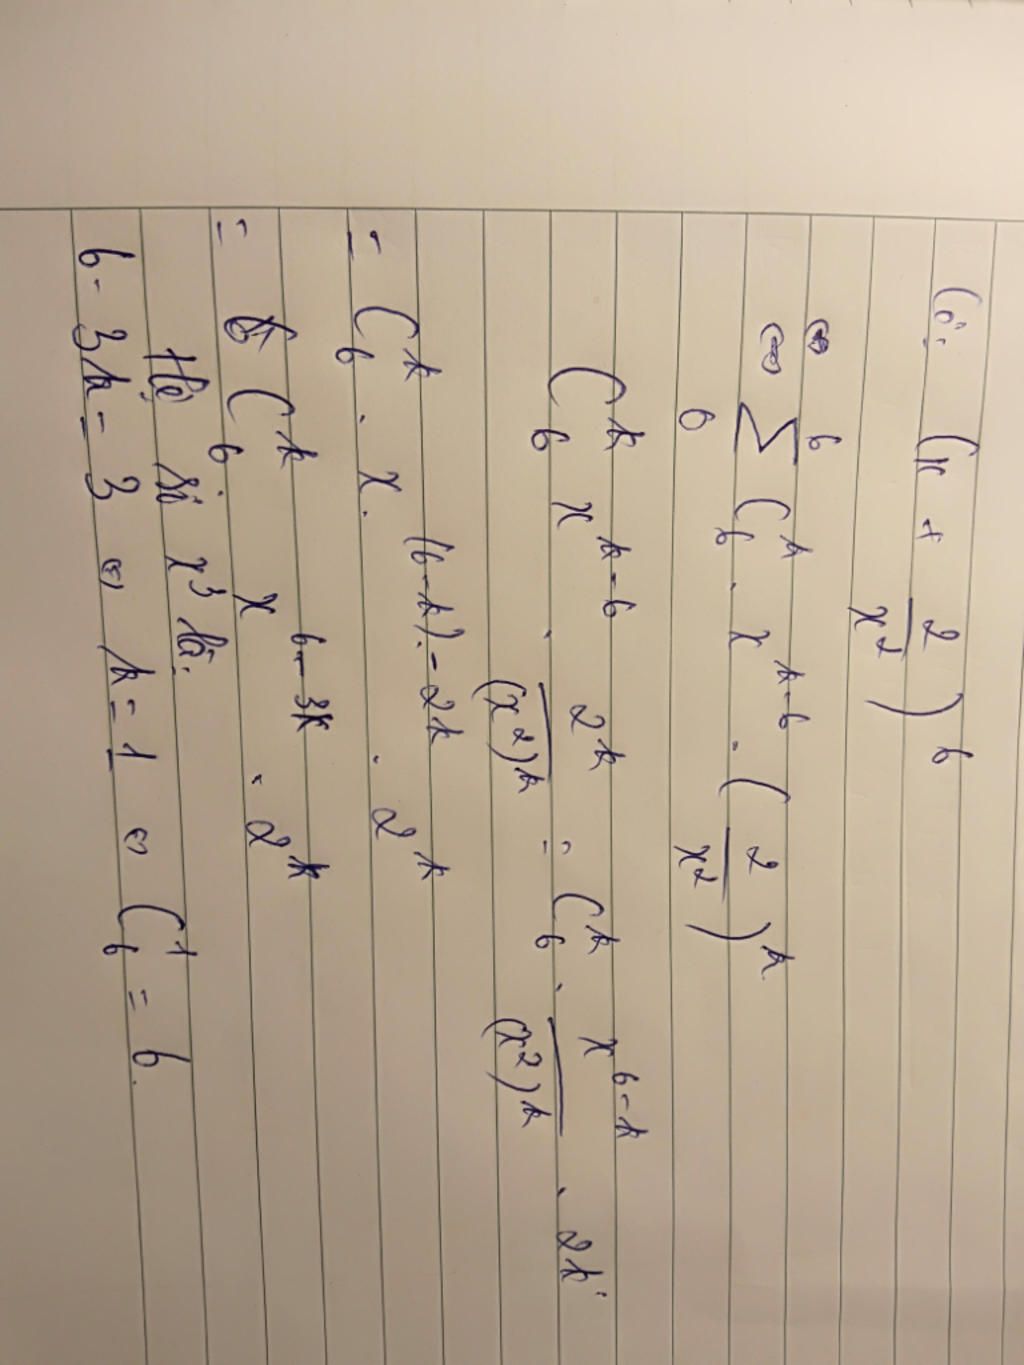 Có: (x + 2/x²)^6
⇔ 6 Σ 6 C_6^k . x^{k-6} . (2/x²)^k
C_6^k x^{k-6} . 2^k/(x²)^k = C_6^k . x^{6-k}/(x²)^k . 2^k
= C_6^k . x.^{(6-k).-2k} . 2^k
= C_6^k x^{6-3k} . 2^k
Hệ số x³ là:
6-3k=3 ⇔ k=1 ⇔ C_6^1 = 6.